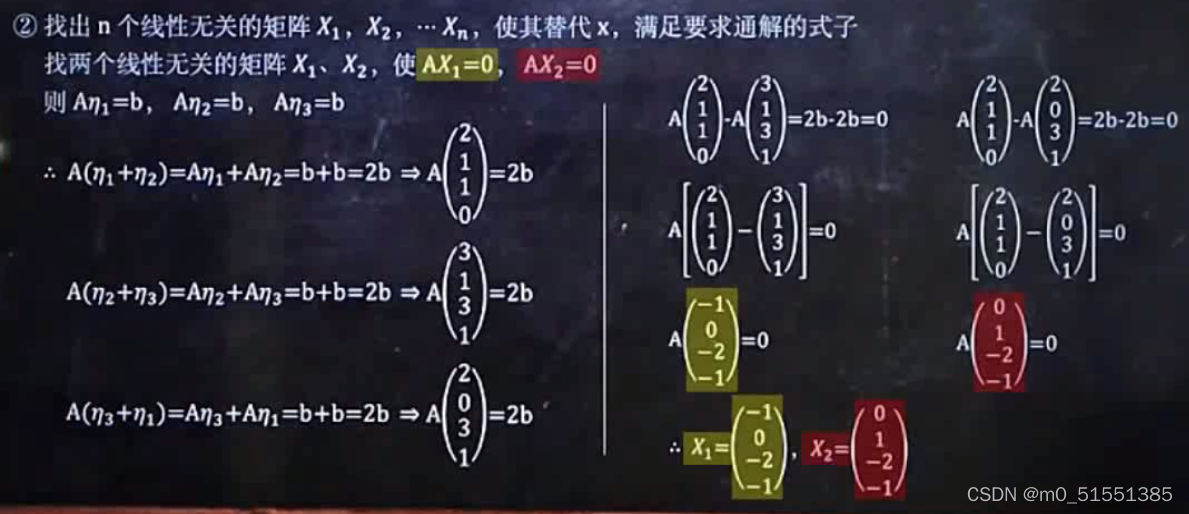 ② 找出 n 个线性无关的矩阵 X₁，X₂，⋯Xₙ，使其替代 x，满足要求通解的式子
找两个线性无关的矩阵 X₁、X₂，使 AX₁=0， AX₂=0
则 Aη₁=b， Aη₂=b， Aη₃=b
∴ A(η₁+η₂)=Aη₁+Aη₂=b+b=2b ⇒ A(2 1 1 0)=2b
A(η₂+η₃)=Aη₂+Aη₃=b+b=2b ⇒ A(3 1 3 1)=2b
A(η₃+η₁)=Aη₃+Aη₁=b+b=2b ⇒ A(2 0 3 1)=2b
A(2 1 1 0)-A(3 1 3 1)=2b-2b=0
A[(2 1 1 0)−(3 1 3 1)]=0
A(−1 0 −2 −1)=0
A(2 1 1 0)-A(2 0 3 1)=2b-2b=0
A[(2 1 1 0)−(2 0 3 1)]=0
A(0 1 −2 −1)=0
∴ X₁=(−1 0 −2 −1)，X₂=(0 1 −2 −1)
CSDN @m0_51551385